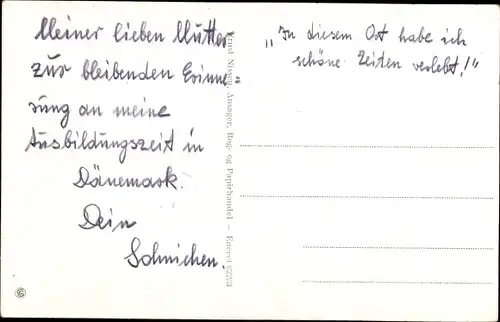 Meiner lieben Mutter
zur bleibenden Erinne=
rung an meine
Ausbildungszeit in
Dänemark.
Dein
Sohnichen.
"In diesem Ost habe ich
schöne Zeiten verlebt!"
Nissen, Ansager, Bog- og Papirhandel - Eneret 82223